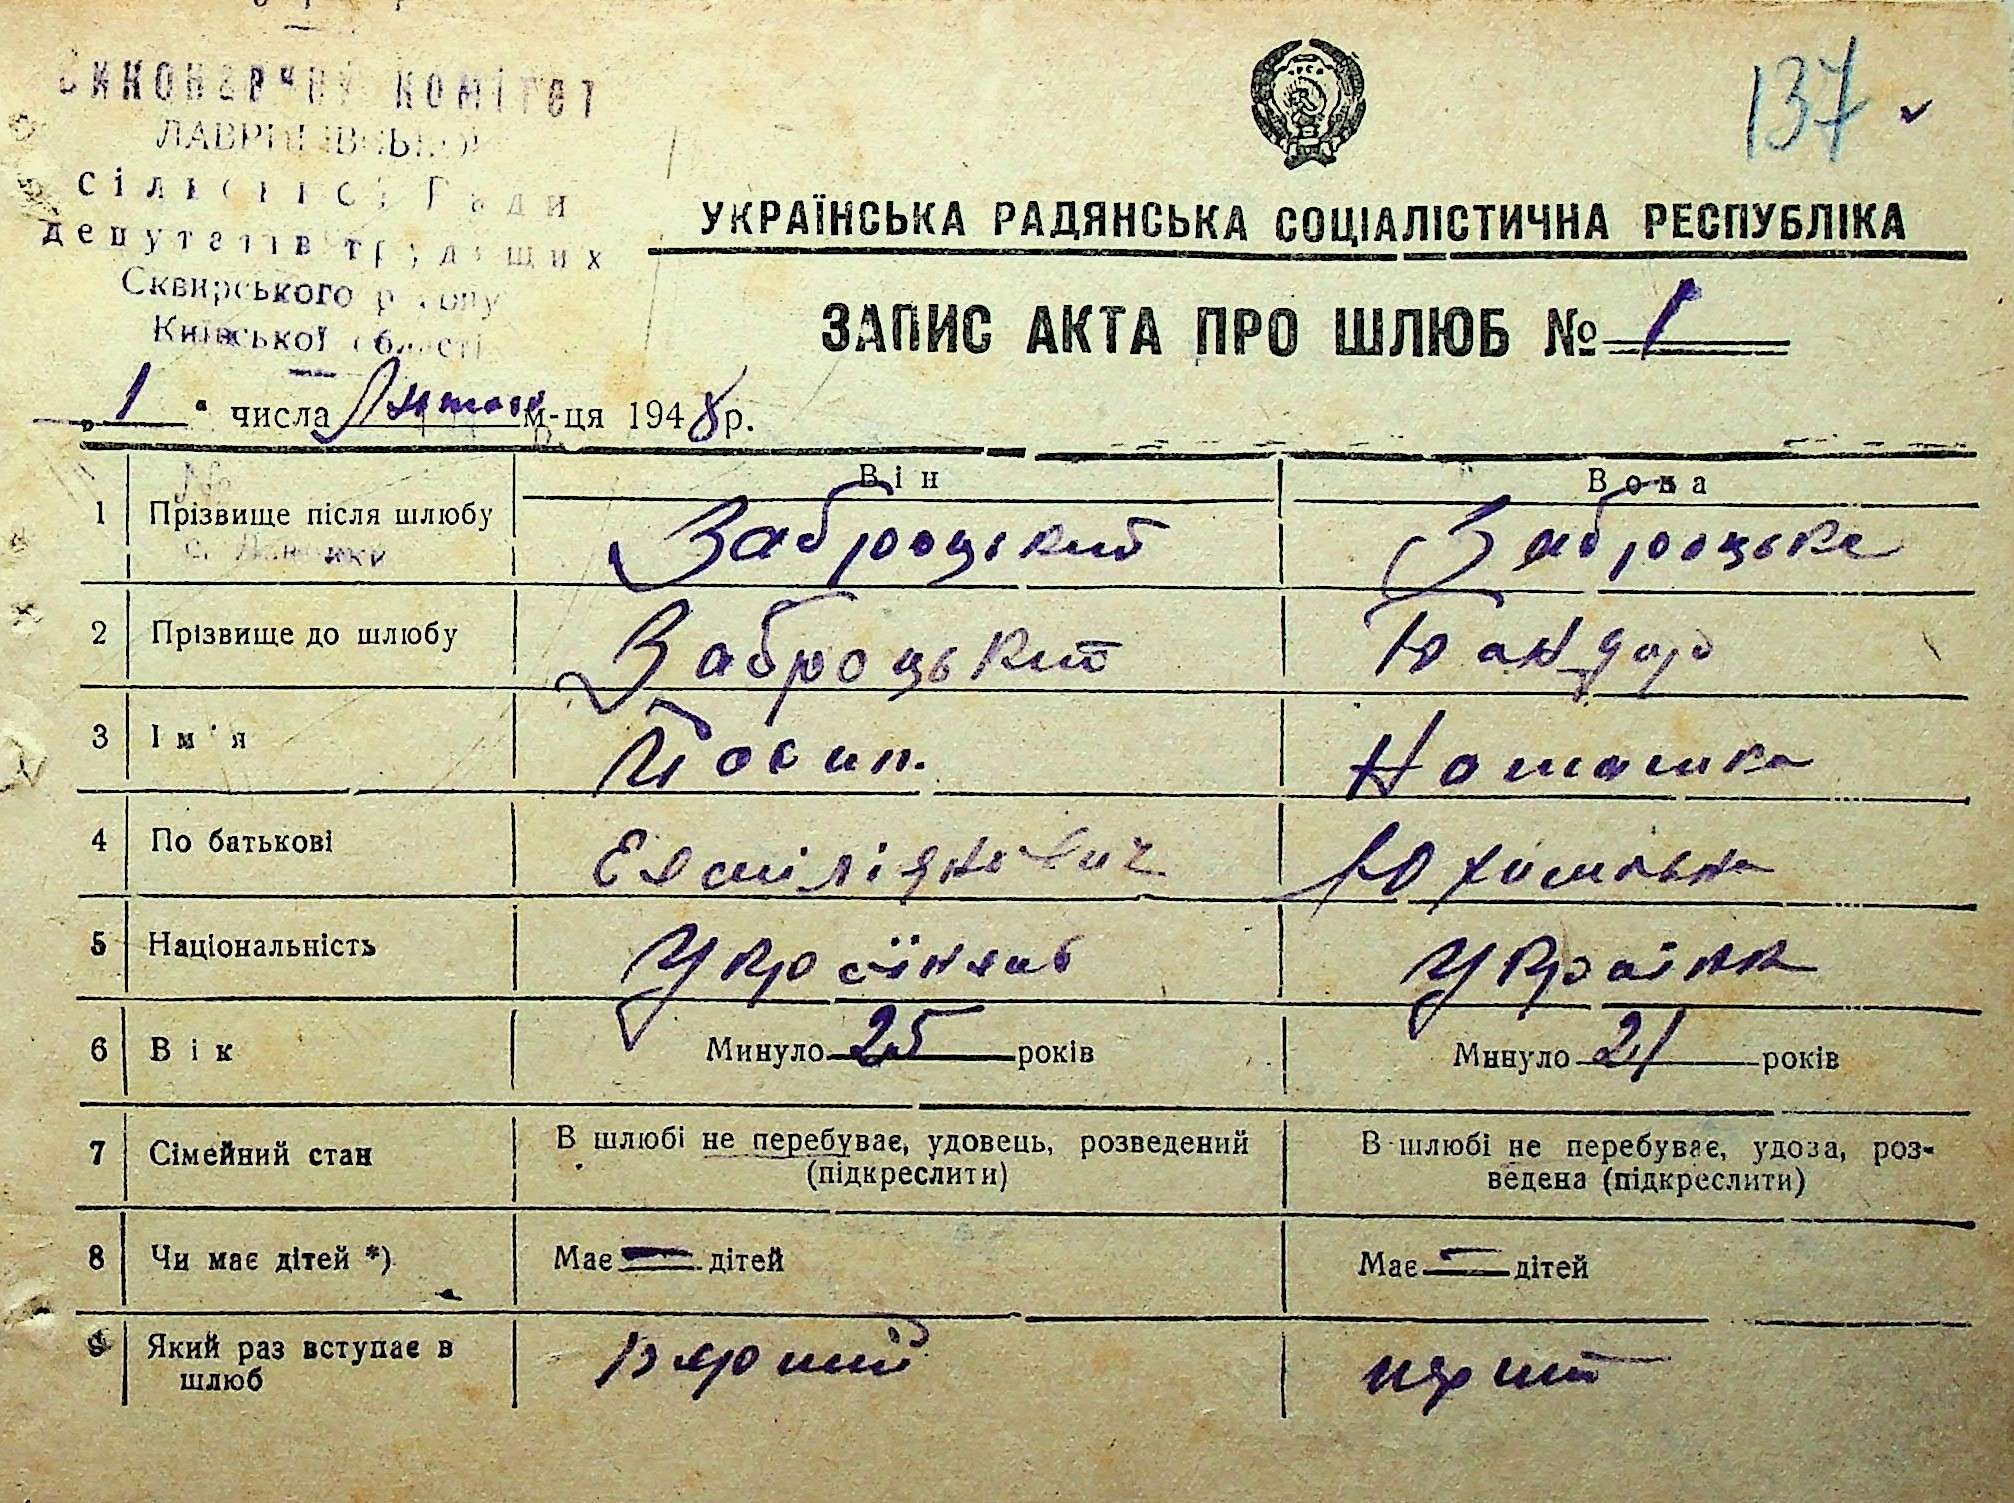 137
Виконавчий комітет
сільської Ради
депутатів трудящих
Сквирського району
Київської області
УКРАЇНСЬКА РАДЯНСЬКА СОЦІАЛІСТИЧНА РЕСПУБЛІКА
ЗАПИС АКТА ПРО ШЛЮБ № 1
„1“ числа Лютого м-ця 1948 р.
Він Вона
1 Прізвище після шлюбу Заброцький Заброцька
2 Прізвище до шлюбу Заброцький Бандур
3 Ім'я Йосип. Наташка
4 По батькові Юхимовна
5 Національність Українець Українка
6 Вік Минуло 25 років Минуло 21 років
7 Сімейний стан В шлюбі не перебуває, удовець, розведений (підкреслити) В шлюбі не перебуває, удова, роз-
ведена (підкреслити)
8 Чи має дітей *) Має — дітей Має — дітей
9 Який раз вступає в шлюб перший перший